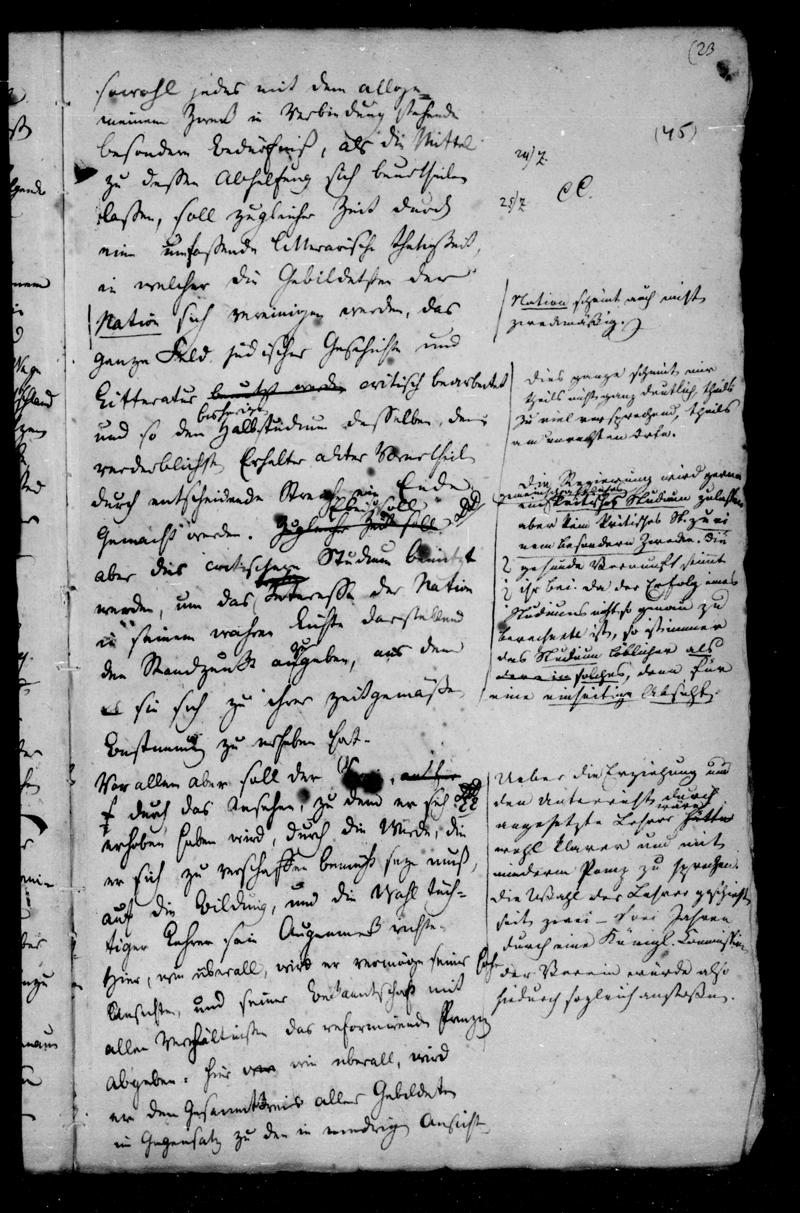 (23
(45)
sowohl jedes mit dem allge-
meinem Zweck in Verbindung stehende
besondere Bedürfniß, als die Mittel
zu dessen Abhelfung sich beurtheilen
lassen, soll zugleicher Zeit durch
eine umfassende litterarische Thätigkeit,
in welcher die Gebildetsten der
Nation sich vereinigen werden, das
ganze Feld jüdischer Geschichte und
Litteratur benutzt werden critisch bearbeitet
und so den bisherige Halbstudium desselben, dem
verderblichsten Erhalter alter Vorurtheile
durch entscheidende Streiche ein Ende
gemacht werden. Zugleicher Zeit soll
Ebenso soll
aber dies critische Studium benutzt
werden, um das Interesse der Nation
in seinem wahren Lichte darstellend
den Standpunkt anzugeben, aus dem
sie sich zu ihrer zeitgemäßen
Bestimmung zu erheben hat.
Vor allem aber soll der
durch das Ansehen, zu dem er sich
erhoben haben wird, durch die Würde, die
er sich zu verschaffen bemüht seyn muß,
auf die Bildung, und die Wahl tüch-
tiger Lehrer sein Augenmerk richten.
Hier, wie überall, wird er vermöge seiner
Ansichten, und seiner Bekanntschaft mit
allen Verhältnissen das reformirende Prinzip
abgeben. Hier wie überall, wird
er den Gesammtkreis aller Gebildeten
im Gegensatz zu den in niedrigen Ansichten
24/7.
25/7 CC.
Nation scheint auch nicht
zweckmäßig.
Dies ganze scheint mir
theils nicht ganz deutlich, theils
zu viel versprechend, theils
am unrechten Orte.
Die Regierung wird gerne
ein kritisches Studium zulassen
aber kein kritisches St. zu ei
nem besondern Zwecke. Die
gesunde Vernunft stimmt
ihr bei. da der Erfolg eines
Studiums nicht so genau zu
berechnen ist, so ist immer
das Studium löblicher als
solches, denn für
eine einseitige Absicht.
Ueber die Erziehung und
den Unterricht durch
angesetzte Lehrer wäre
wohl klarer und mit
minderm Pomp zu sprechen.
die Wahl der Lehrer geschieht
seit zwei – drei Jahren
durch eine Königl. Commission
der Verein würde also
hiedurch sogleich anstoßen.